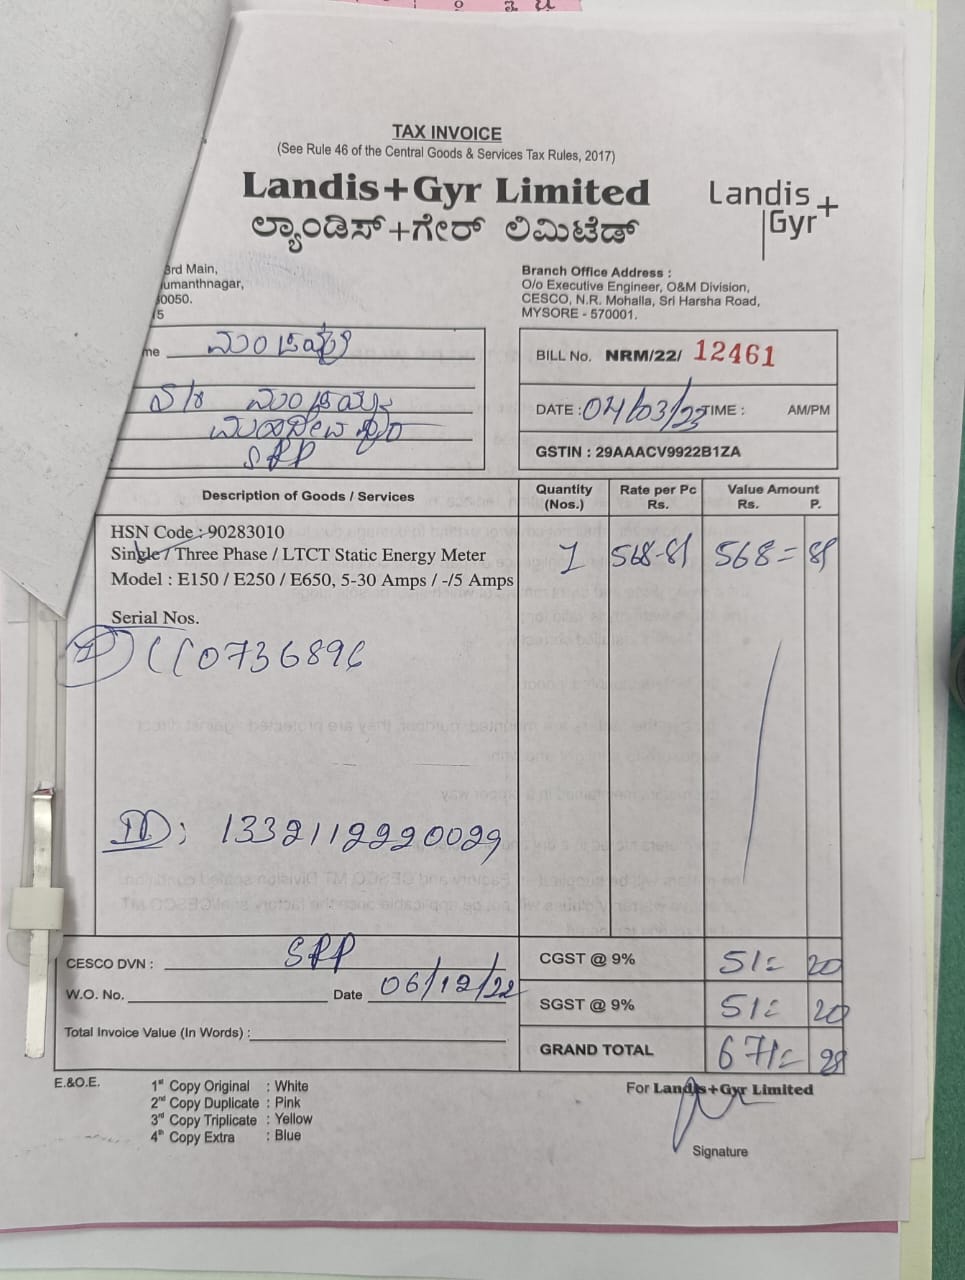 TAX INVOICE
(See Rule 46 of the Central Goods & Services Tax Rules, 2017)
Landis+Gyr Limited
ಲ್ಯಾಂಡಿಸ್+ಗೇರ್ ಲಿಮಿಟೆಡ್
Landis
Gyr+
3rd Main,
umanthnagar,
0050.
5
Branch Office Address :
O/o Executive Engineer, O&M Division,
CESCO, N.R. Mohalla, Sri Harsha Road,
MYSORE - 570001.
me
S/o
SRP
BILL No. NRM/22/ 12461
DATE : 04/03/23 TIME : AM/PM
GSTIN : 29AAACV9922B1ZA
Description of Goods / Services Quantity (Nos.) Rate per Pc Rs. Value Amount Rs. P.
HSN Code : 90283010
Single / Three Phase / LTCT Static Energy Meter 1 568-81 568= 81
Model : E150 / E250 / E650, 5-30 Amps / -/5 Amps
Serial Nos.
0736896
ID: 1332112220029
CESCO DVN : SRP CGST @ 9% 51= 20
W.O. No. Date 06/12/22 SGST @ 9% 51= 20
Total Invoice Value (In Words) : GRAND TOTAL 671= 28
E.&O.E.
1st Copy Original : White
2nd Copy Duplicate : Pink
3rd Copy Triplicate : Yellow
4th Copy Extra : Blue
For Landis+Gyr Limited
Signature